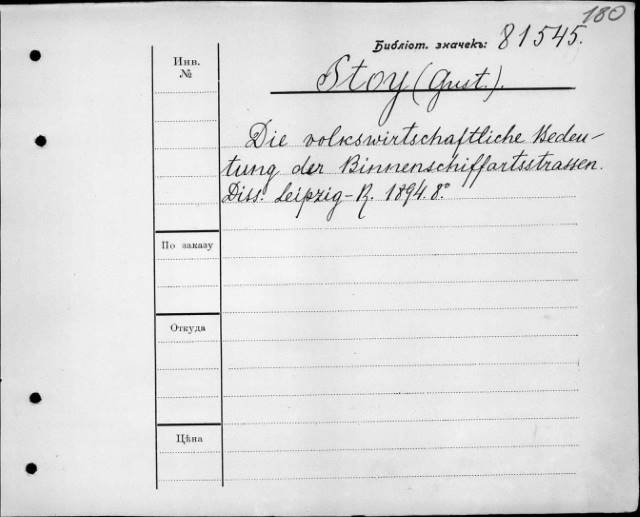 180
Библіот. значекъ: 81545.
Инв.
№
Stoy (Gust.).
Die volkswirtschaftliche Bedeu-
tung der Binnenschiffartsstrassen.
Diss. Leipzig-R. 1894. 8°
По заказу
Откуда
Цѣна